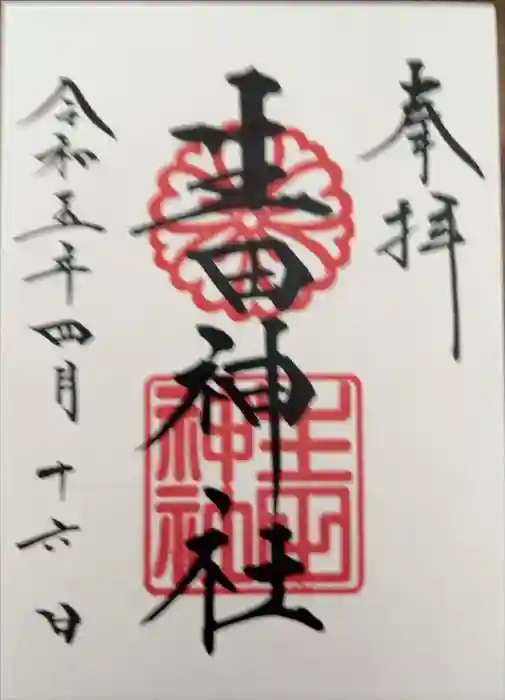 奉拝
生田神社
生田神社
令和五年四月十六日